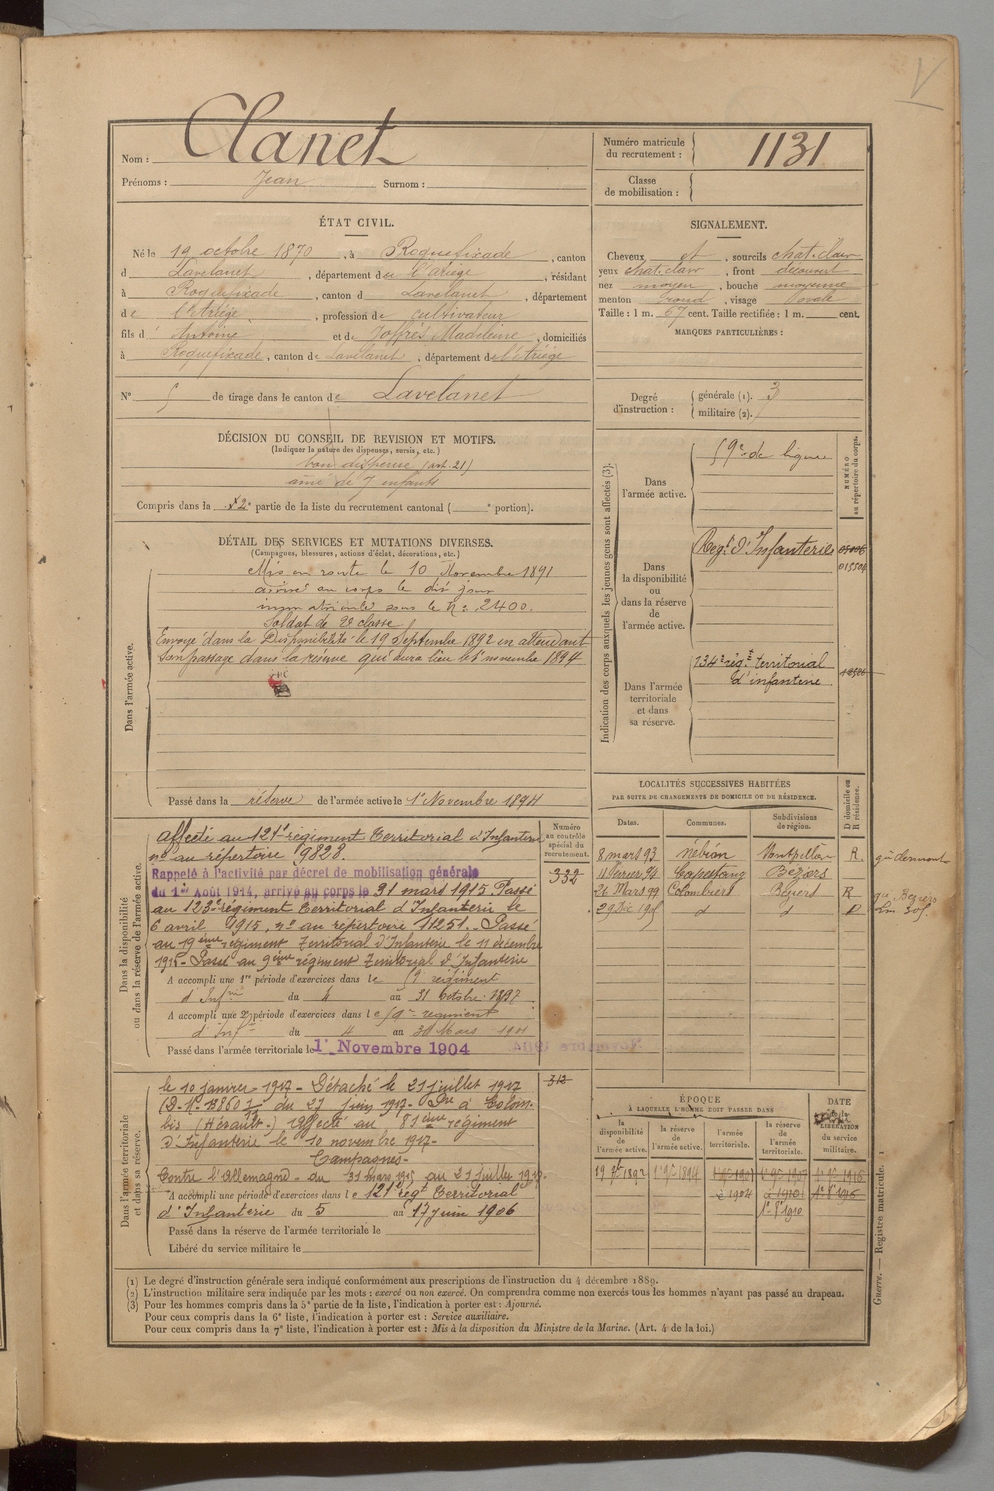 V
Nom : Clanet
Prénoms : Jean Surnom :
Numéro matricule du recrutement : 1131
Classe de mobilisation :
ÉTAT CIVIL.
Né le 19 octobre 1870, à Roquefixade, canton
d Lavelanet, département de l'ariège, résidant
à Roquefixade, canton d Lavelanet, département
de l'Ariège, profession de cultivateur
fils d' Antoine et de Joffrès Madeleine, domiciliés
à Roquefixade, canton de Lavelanet, département de l'Ariège
N° 5 de tirage dans le canton de Lavelanet
SIGNALEMENT.
Cheveux et, sourcils chat. clair
yeux chat. clair, front découvert
nez moyen, bouche moyenne
menton rond, visage ovale
Taille : 1 m. 67 cent. Taille rectifiée : 1 m. cent.
MARQUES PARTICULIÈRES :
Degré d'instruction : générale (1). 3
militaire (2).
DÉCISION DU CONSEIL DE REVISION ET MOTIFS.
(Indiquer la nature des dispenses, sursis, etc.)
bon dispensé (art. 21)
aîné de 7 enfants
Compris dans la 2e partie de la liste du recrutement cantonal ( e portion).
DÉTAIL DES SERVICES ET MUTATIONS DIVERSES.
(Campagnes, blessures, actions d'éclat, décorations, etc.)
Dans l'armée active.
Mis en route le 10 Novembre 1891
arrivé au corps le dit jour
immatriculé sous le n° 2400.
Soldat de 2e classe
Envoyé dans la Disponibilité le 19 Septembre 1892 en attendant
son passage dans la réserve qui aura lieu le 1er novembre 1894
Passé dans la réserve de l'armée active le 1er Novembre 1894
Indication des corps auxquels les jeunes gens sont affectés (3).
NUMÉRO au répertoire du corps.
Dans l'armée active.
59e de ligne
Dans la disponibilité ou dans la réserve de l'armée active.
Regt d'Infanterie
015504
Dans l'armée territoriale et dans sa réserve.
134e régt territorial
d'infanterie
Dans la disponibilité ou dans la réserve de l'armée active.
Numéro au contrôle spécial du recrutement.
332
Affecté au 121e régiment Territorial d'Infanterie
n° au répertoire 9828.
Rappelé à l'activité par décret de mobilisation générale
du 1er Août 1914, arrivé au corps le 31 mars 1915. Passé
au 123e régiment Territorial d'Infanterie le
6 avril 1915, n° au répertoire 11251. Passé
au 19ème régiment Territorial d'Infanterie le 11 décembre
1915 - Passé au 9ème régiment Territorial d'Infanterie
A accompli une 1re période d'exercices dans le 59 régiment
d'Infrie du 4 au 31 Octobre 1897
A accompli une 2e période d'exercices dans le 59e régiment
d'Inf du 4 au 30 Mars 1901
Passé dans l'armée territoriale le 1er Novembre 1904
LOCALITÉS SUCCESSIVES HABITÉES
PAR SUITE DE CHANGEMENTS DE DOMICILE OU DE RÉSIDENCE.
Dates. Communes. Subdivisions de région. D domicile ou R résidence.
8 mars 93 Nébian Montpellier R.
11 Février 94 Capestang Béziers
26 Mars 99 Colombiers Béziers R
29 Dic d d D
Dans l'armée territoriale et dans sa réserve.
312
le 10 janvier 1917 - Détaché le 21 juillet 1917
du 27 juin 1917 à Colom-
biers (Hérault.) Affecté au 81ème régiment
d'Infanterie le 10 novembre 1917-
Campagnes-
Contre l'Allemagne - du 31 mars 1915 au 21 juillet 1917-
A accompli une période d'exercices dans le 121e régt Territorial
d'Infanterie du 5 au 17 juin 1906
Passé dans la réserve de l'armée territoriale le
Libéré du service militaire le
ÉPOQUE
À LAQUELLE L'HOMME DOIT PASSER DANS
la disponibilité de l'armée active. la réserve de l'armée active. l'armée territoriale. la réserve de l'armée territoriale.
DATE de la LIBÉRATION du service militaire.
19 7bre 1892 1er 9bre 1894 1er 9bre 1904 1er 9bre 1916
1er 8e 1910
(1) Le degré d'instruction générale sera indiqué conformément aux prescriptions de l'instruction du 4 décembre 1889.
(2) L'instruction militaire sera indiquée par les mots : exercé ou non exercé. On comprendra comme non exercés tous les hommes n'ayant pas passé au drapeau.
(3) Pour les hommes compris dans la 5e partie de la liste, l'indication à porter est : Ajourné.
Pour ceux compris dans la 6e liste, l'indication à porter est : Service auxiliaire.
Pour ceux compris dans la 7e liste, l'indication à porter est : Mis à la disposition du Ministre de la Marine. (Art. 4 de la loi.)
Guerre. — Registre matricule. 1